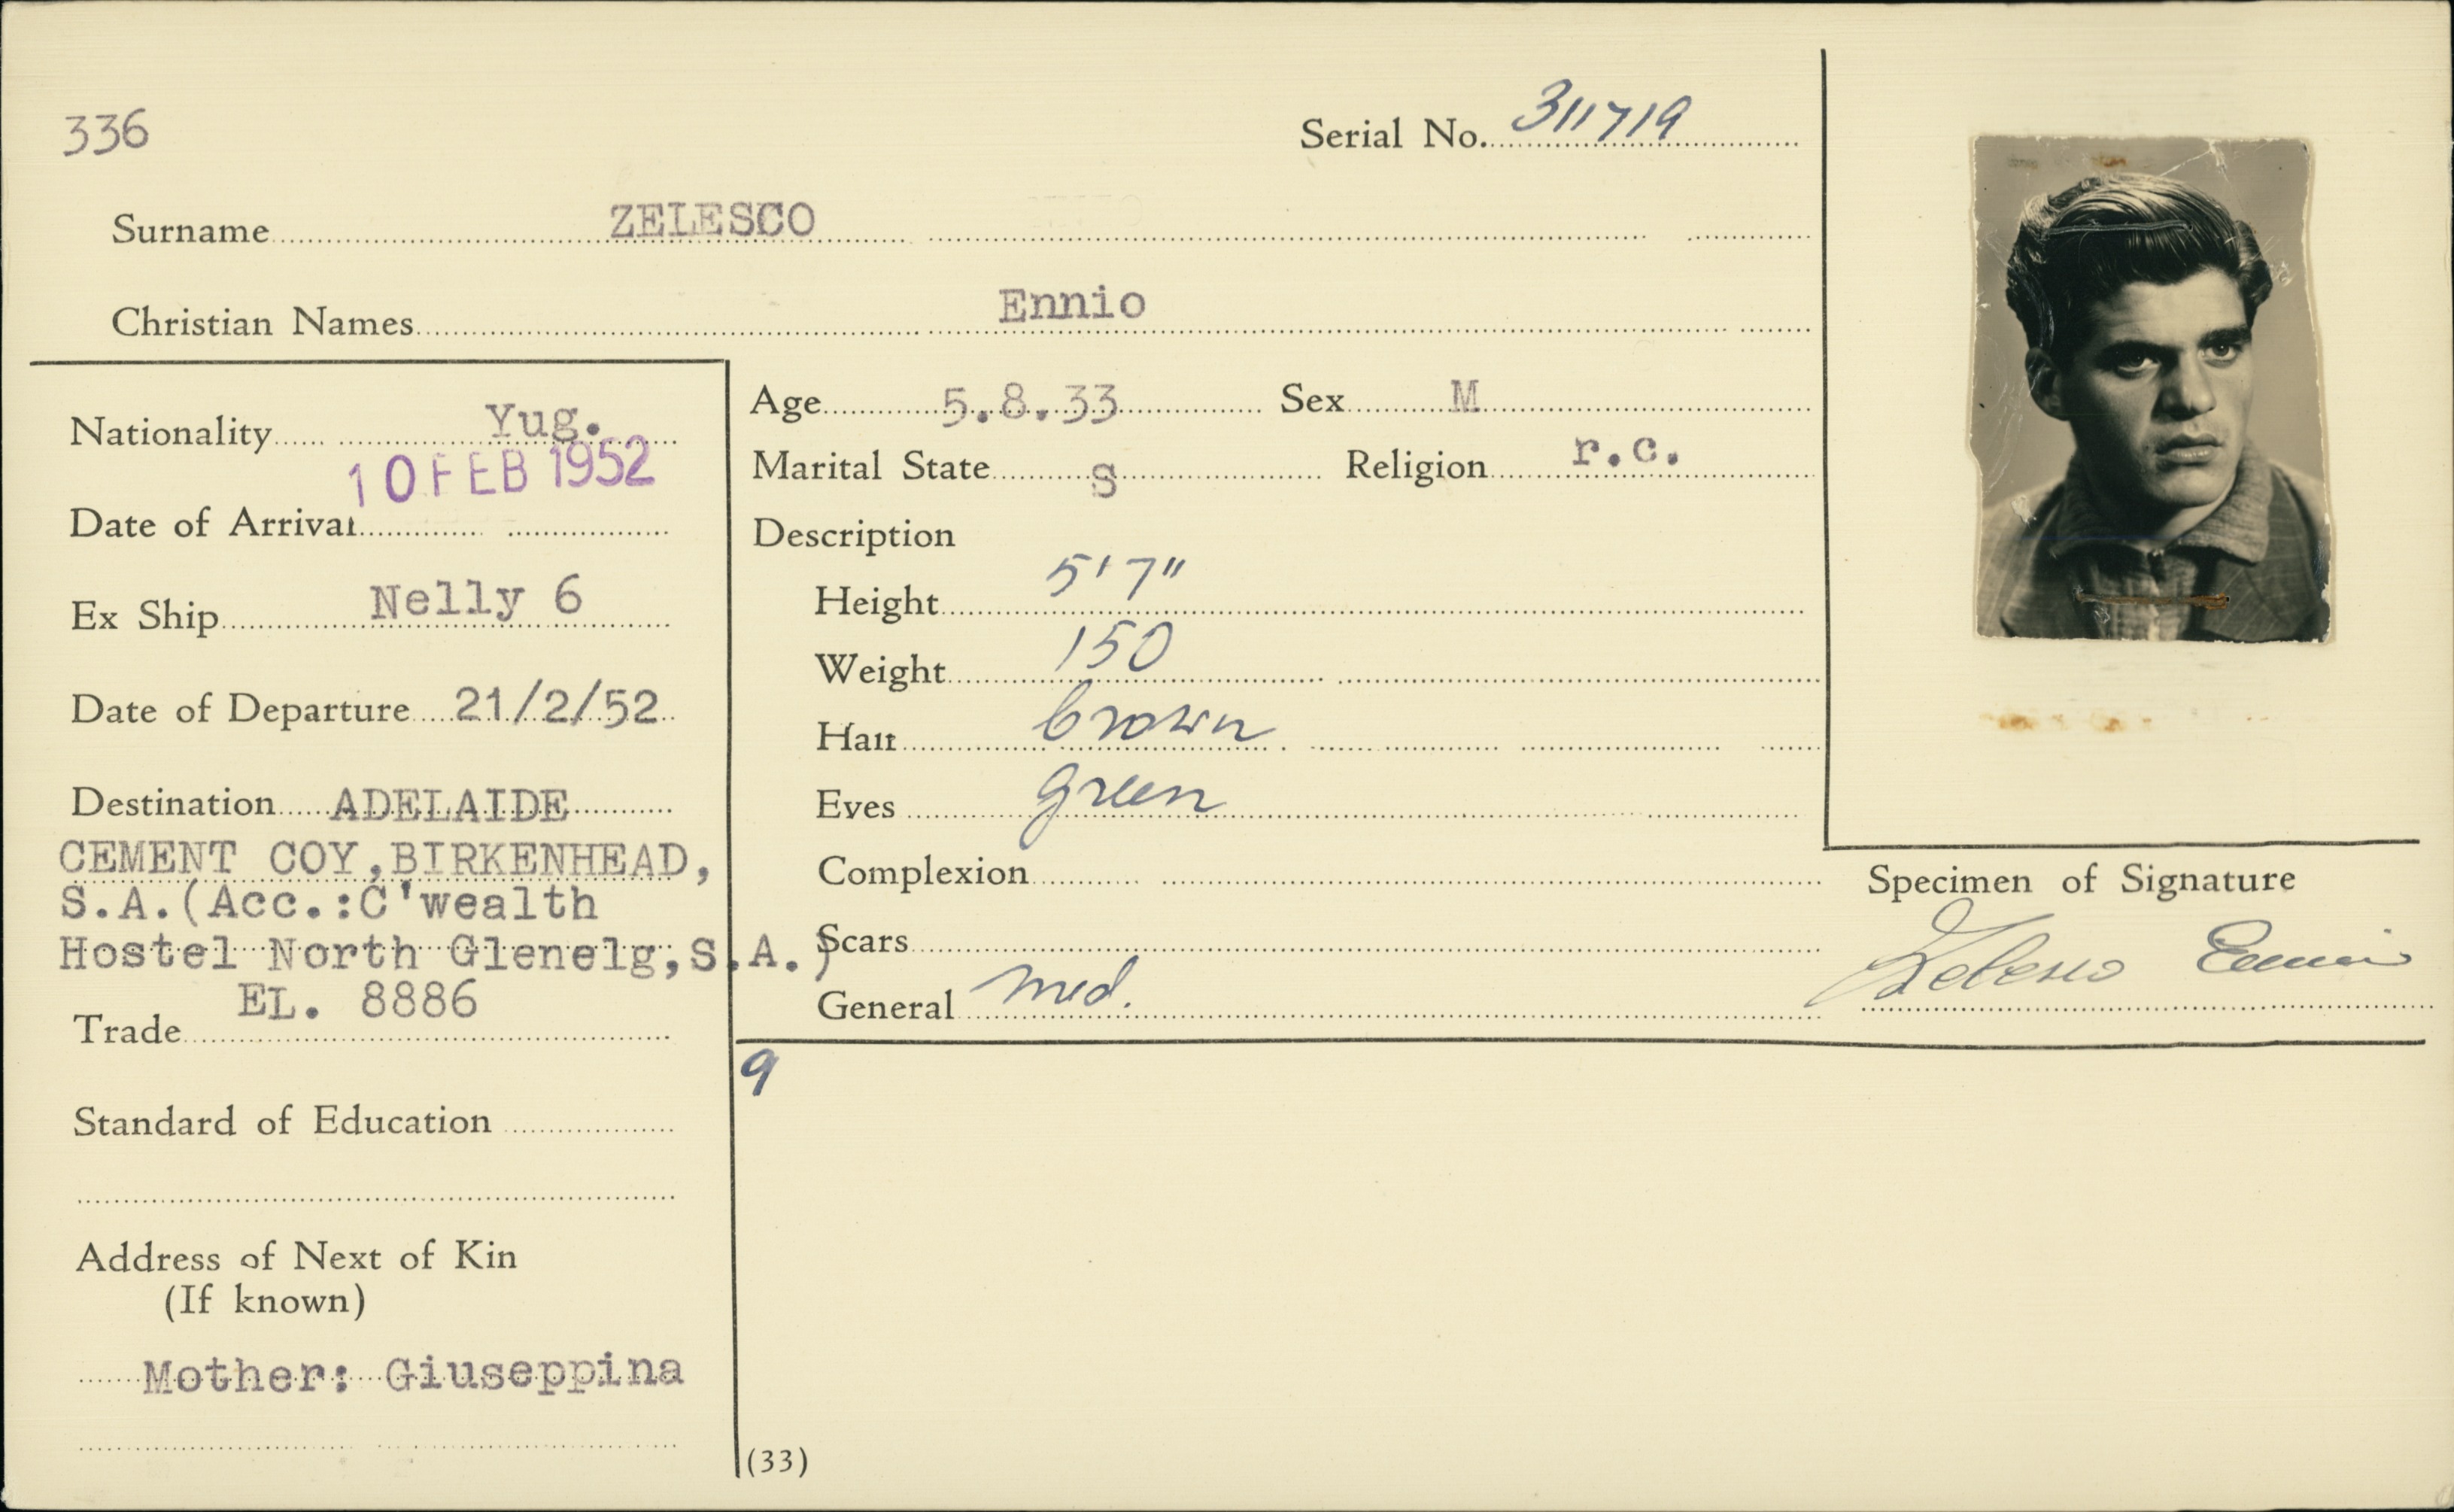 336
Serial No. 311719
Surname ZELESCO
Christian Names Ennio
Nationality Yug.
10 FEB 1952
Date of Arrival
Ex Ship Nelly 6
Date of Departure 21/2/52
Destination ADELAIDE
CEMENT COY,BIRKENHEAD,
S.A.(Acc.:C'wealth
Hostel North Glenelg,S.A.)
EL. 8886
Trade
Standard of Education
Address of Next of Kin
(If known)
Mother: Giuseppina
Age 5.8.33 Sex M
Marital State S Religion r.c.
Description
Height 5'7"
Weight 150
Hair brown
Eyes green
Complexion
Scars
General med.
9
(33)
Specimen of Signature
Zelesco Ennio